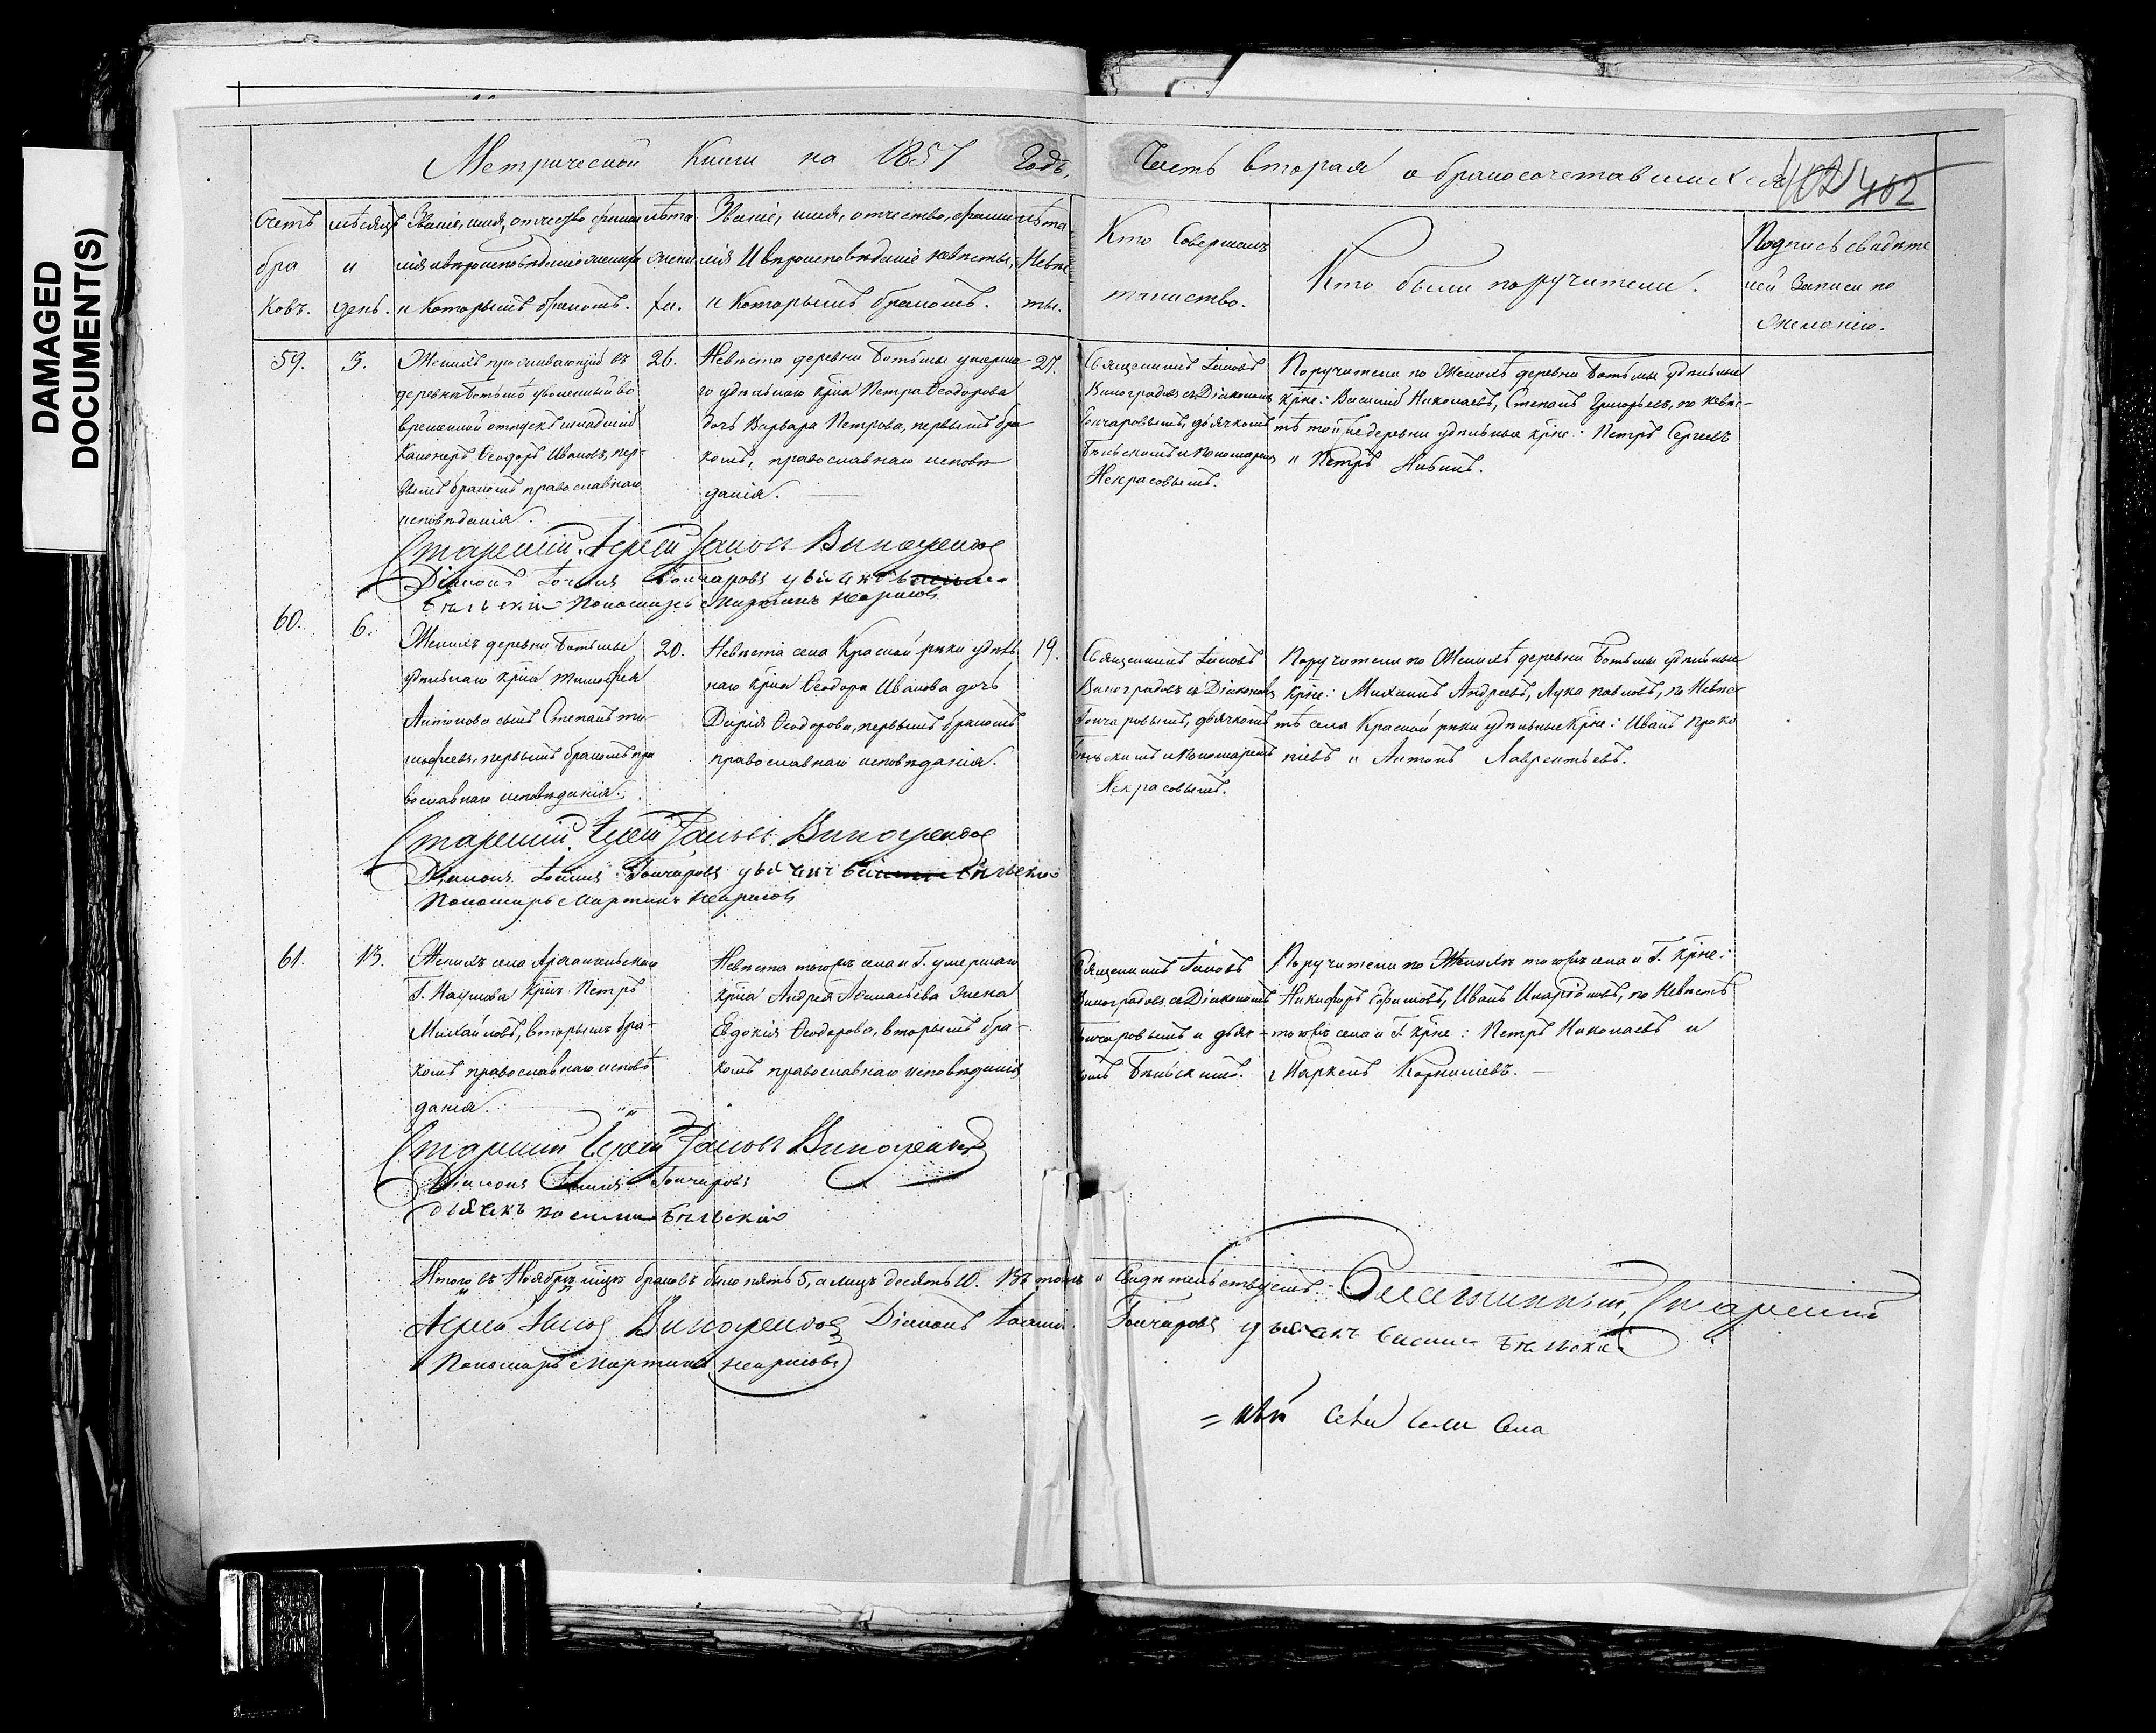 DAMAGED
DOCUMENT(S)
Метрической Книги на 1857 Годъ,
Часть вторая о бракосочетавшихся
402 402
Счетъ браковъ.
мѣсяцъ и день.
Званіе, имя, отчество, фамилія и вѣроисповѣданіе жениха и которымъ бракомъ.
лѣта жениха.
Званіе, имя, отчество, фамилія и вѣроисповѣданіе невѣсты, и которымъ бракомъ.
лѣта Невѣсты.
Кто Совершалъ таинство.
Кто были поручители.
Подпись свидѣтелей Записи по желанію.
59.
3.
Женихъ проживающій въ
деревнѣ Ботьмѣ уволенный во
временной отпускъ младшій
Канонеръ Ѳеодоръ Ивановъ, пер-
вымъ бракомъ православнаго
исповѣданія.
26.
Невѣста деревни Ботьмы умерша
го удѣльнаго кр͠на Петра Ѳеодорова
дочь Варвара Петрова, первымъ бра
комъ, православнаго исповѣ
данія.
27.
Священникъ Іаковъ
Виноградовъ съ Діакономъ
Гончаровымъ, дьячкомъ
Бѣльскимъ и Пономаремъ
Некрасовымъ.
Поручители по Женихѣ деревни Ботьмы удѣльные
кр͠не: Василій Николаевъ, Степанъ Григорьевъ, по невѣ-
стѣ той же деревни удѣльные кр͠не: Петръ Сергеевъ
и Петръ
Старшій Іерей Іаковъ Виноградов
Діаконъ Іоаннъ Гончаровъ дьячекъ
Бѣльскій Пономарь Мартинъ Некрасовъ
60.
6.
Женихъ деревни Ботьмы
удѣльнаго кр͠на Тимофея
Антонова сынъ Степанъ Ти-
мофеевъ, первымъ бракомъ пра
вославнаго исповѣданія.
20.
Невѣста села Красной рѣки удѣль
наго кр͠на Ѳеодора Иванова дочь
Дарія Ѳеодорова, первымъ бракомъ
православнаго исповѣданія.
19.
Священникъ Іаковъ
Виноградовъ съ Діакономъ
Гончаровымъ, дьячкомъ
Бѣльскимъ и Пономаремъ
Некрасовымъ.
Поручители по Женихѣ деревни Ботьмы удѣльные
кр͠не: Михаилъ Андреевъ, Лука Павловъ, по Невѣс
тѣ села Красной рѣки удѣльные кр͠не: Иванъ Проко
піевъ и Антонъ Лаврентьевъ.
Старшій Іерей Іаковъ Виноградов
Діаконъ Іоаннъ Гончаровъ дьячекъ Бѣльскій
Пономарь Мартинъ Некрасовъ
61.
13.
Женихъ села Архангельскаго
Г. Наумова кр͠нъ Петръ
Михайловъ, вторымъ бра-
комъ православнаго исповѣ
данія.
Невѣста того жъ села и Г. умершаго
кр͠на Андрея Аѳанасьева жена
Евдокія Ѳеодорова, вторымъ бра-
комъ православнаго исповѣданія
Священникъ Іаковъ
Виноградовъ съ Діакономъ
Гончаровымъ и дьяч-
комъ Бѣльскимъ.
Поручители по Женихѣ того жъ села и Г. кр͠не:
Никифоръ Ефимовъ, Иванъ Иларіоновъ, по Невѣстѣ
того жъ села и Г. кр͠не: Петръ Николаевъ и
Маркелъ Корнилиевъ.
Старшій Іерей Іаковъ Виноградовъ
Діаконъ Іоаннъ Гончаровъ
дьячекъ Бѣльскій
Итого въ Ноябрѣ мцѣ браковъ было пять 5, а лицъ десять 10. Въ томъ и свидѣтельствуемъ. Старшій
Іерей Іаков Виноградов Діаконъ Іоаннъ Гончаровъ дьячекъ Василій Бѣльскій
Пономарь Мартинъ Некрасовъ